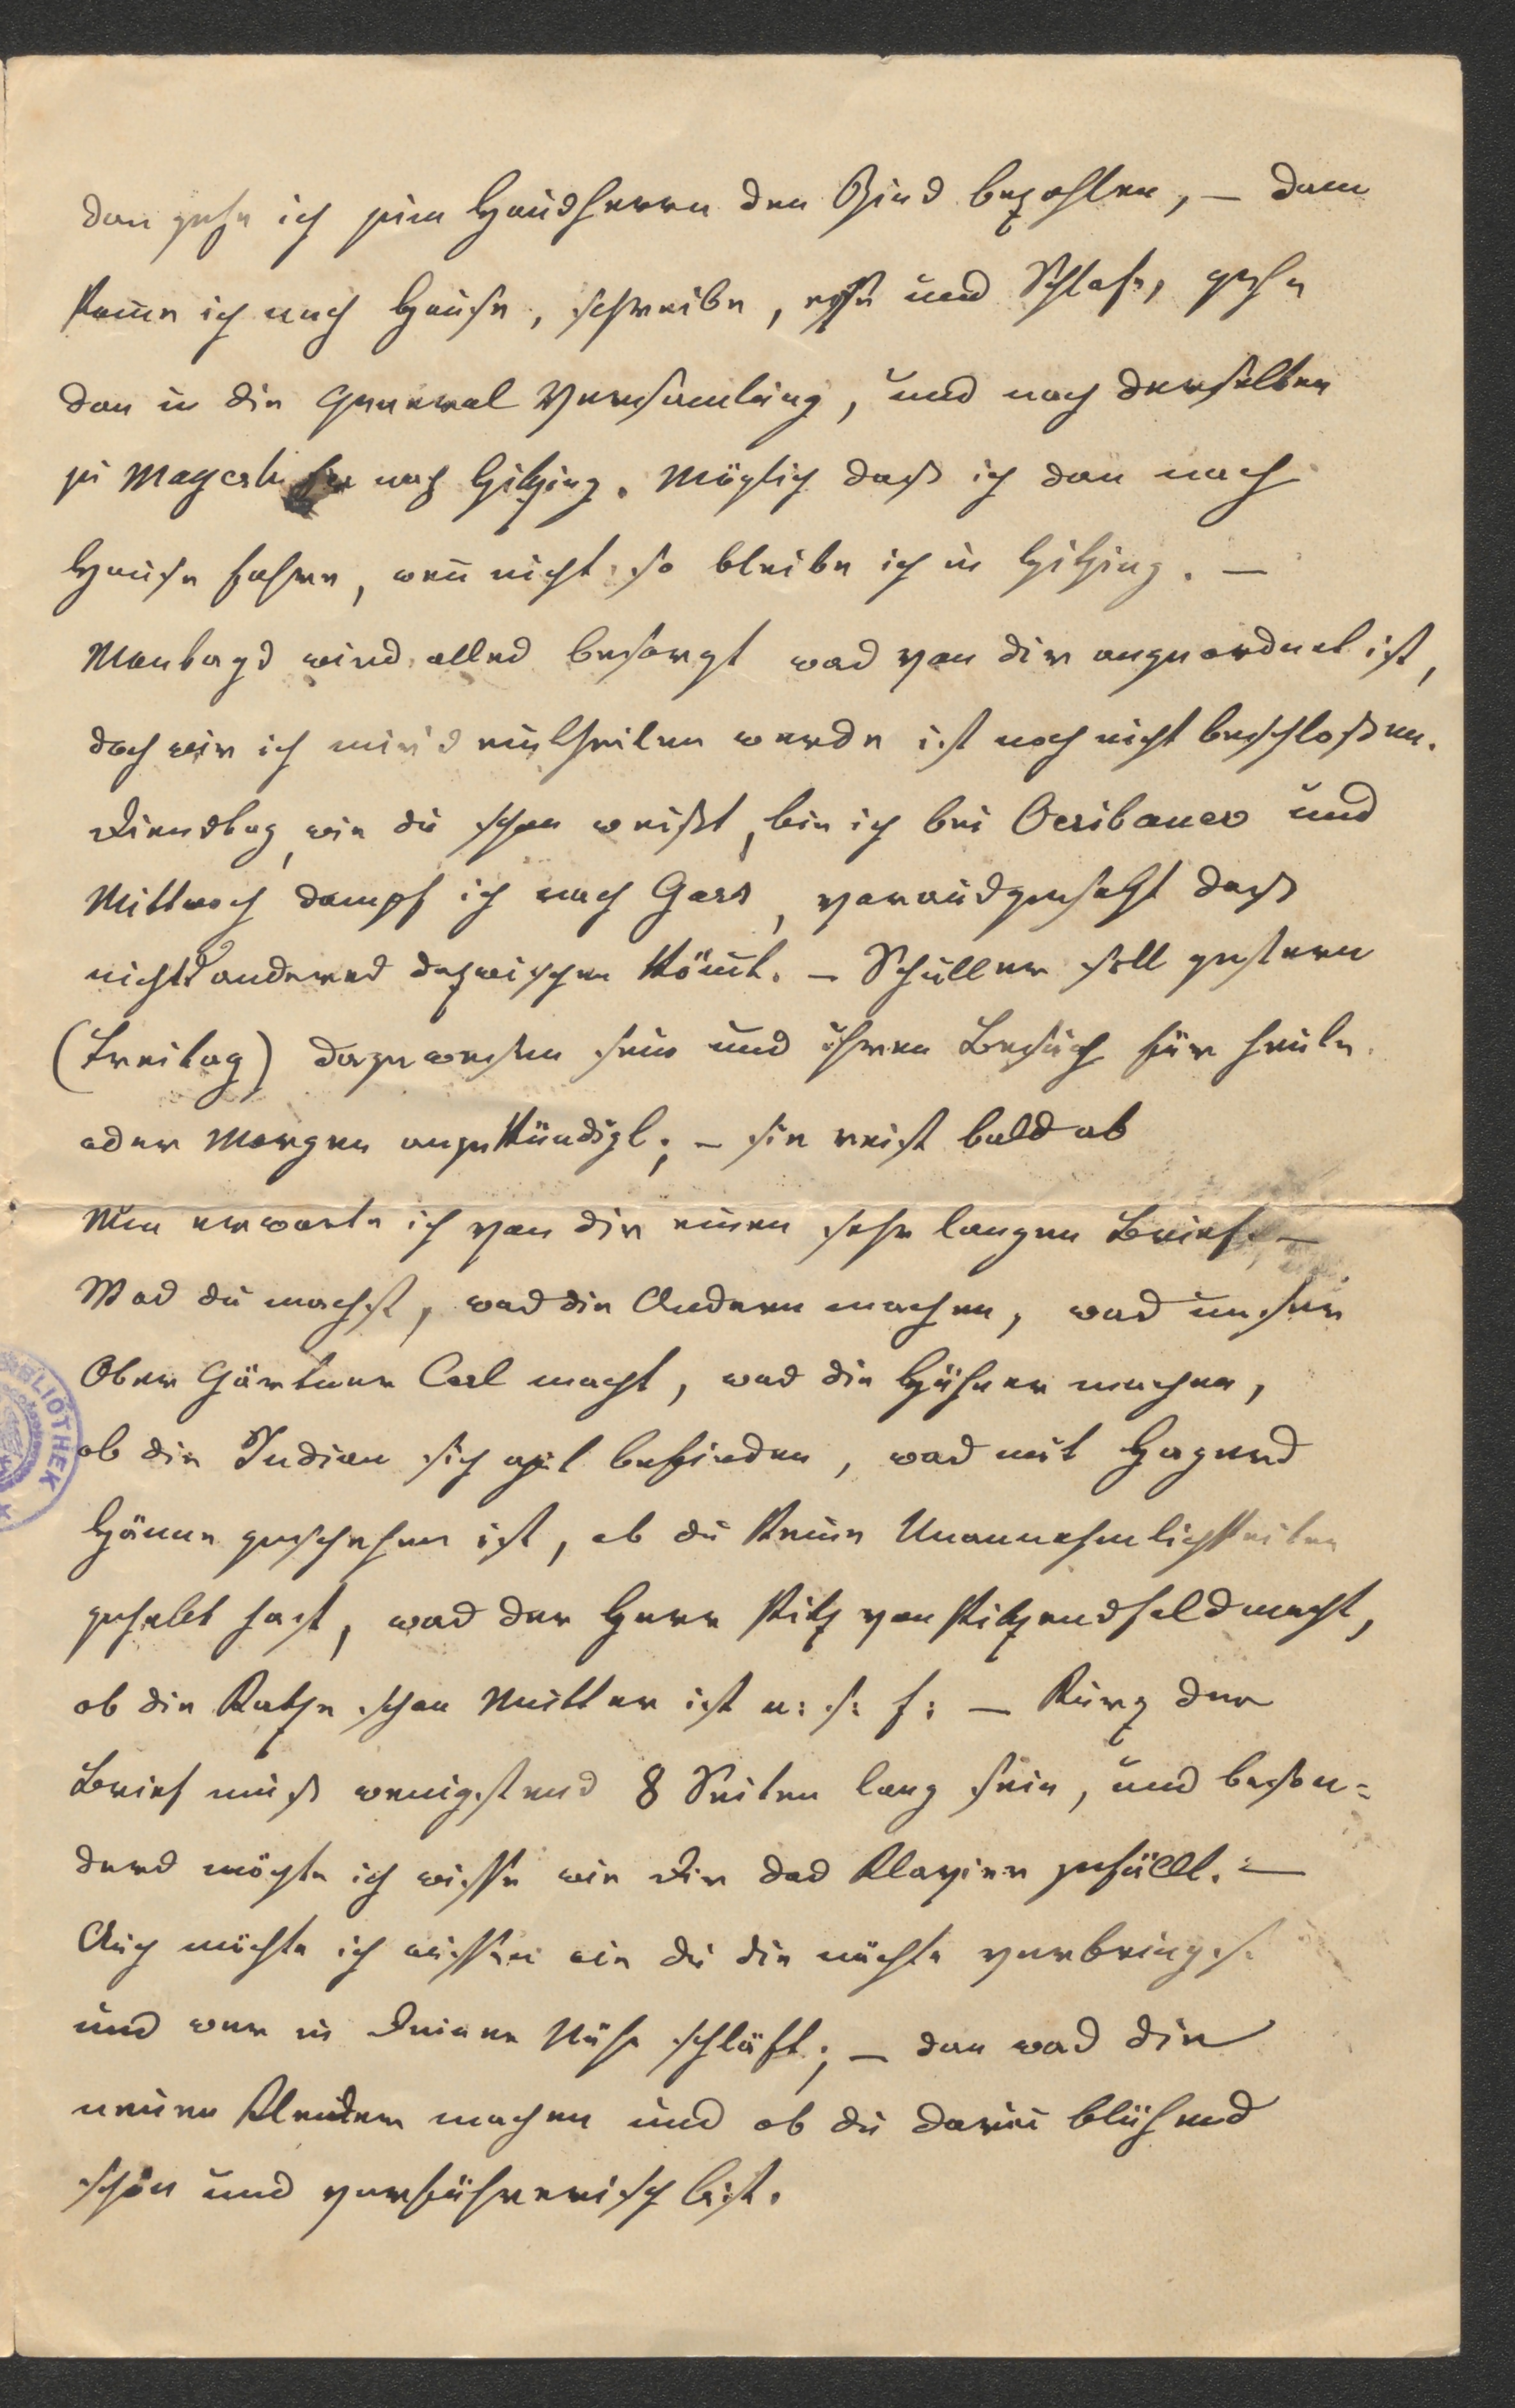 dan gehe ich zum Hausherrn den Zins bezahlen, — dann
kom̅e ich nach Hause, schreibe, esse und Schlafe, gehe
dan in die General Versamlung, und nach derselben
zu Mayer nach Hitzing. Möglich dass ich dan nach
Hause fahre, wen̅ nicht so bleibe ich in Hitzing. —
Montags wird alles besorgt was von dir angeordnet ist,
doch wie ich mir's eintheilen werde ist noch nicht beschlossen.
Dienstag, wie du schon weißt, bin ich bei und
Mittwoch dampf ich nach Gars, vorausgesetzt dass
nichts anderes dazwischen köm̅t. — Schuller soll gestern
(Freitag) dagewesen sein und ihren Besuch für heute
oder Morgen angekündigt; — sie reist bald ab
Nun erwarte ich von dir einen sehr langen Brief. —
Was du machst, was die Andern machen, was unser
Ober Gärtner Carl macht, was die Hühner machen,
ob die Indian sich gut befinden, was mit Hagers
Hänne geschehen ist, ob du keine Unannehmlichkeiten
gehabt hast, was der Herr Kitz von Kitzensfeld macht,
ob die Katze schon Mutter ist u: s: f: — Kurz der
Brief muß wenigstens 8 Seiten lang sein, und beson=
ders möchte ich wisse wie Dir das Klavier gefällt. —
Auch möchte ich wissen wie du die nächte verbringst
und wer in Deiner Nähe schläft; — dan was die
neuen Kleider machen und ob du darin̅ blühend
schön und verführerisch bist.
BIBLIOTHEK